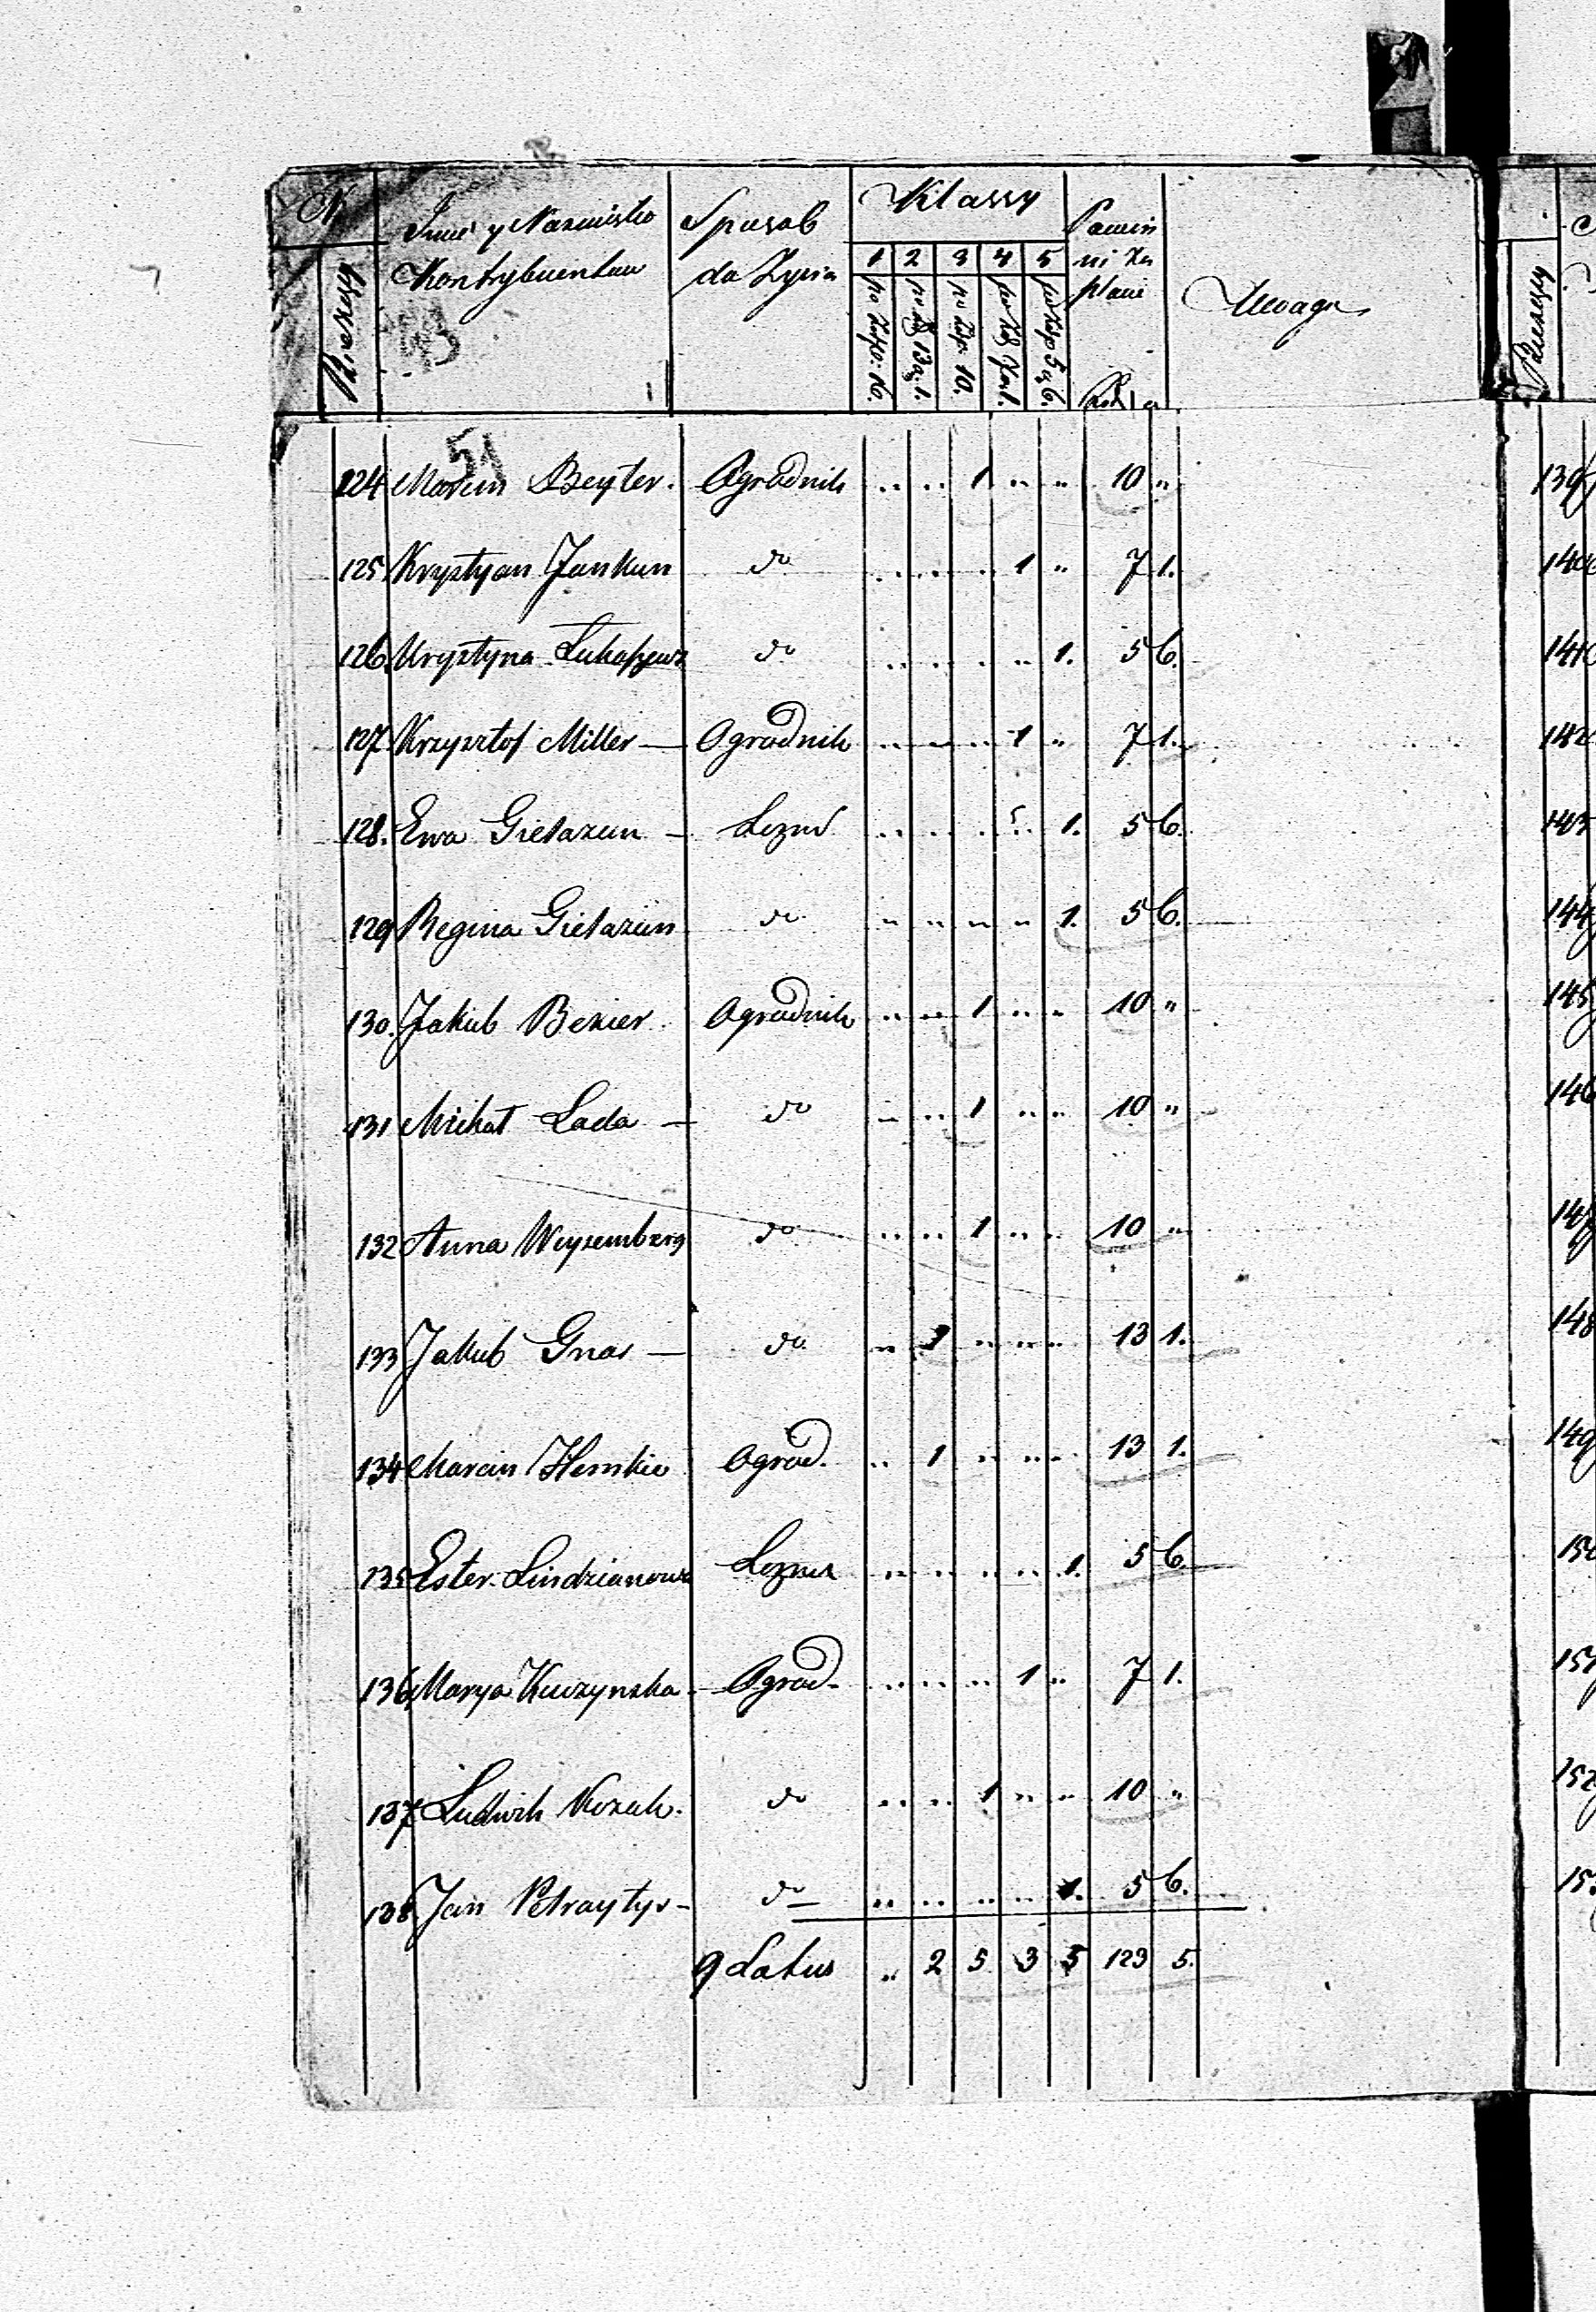 N
Bieżący
Imie y Nazwisko
Kontrybuentow
Sposob
do Zycia
Klassy
1 2 3 4 5
po Złp. 16.
po Zł 13 g. 1.
po Złp. 10.
po Zł 7 gr. 1.
po Złp 5 g 6.
Powin
ni Za
placic
Uwaga
51
124 Marcin Beyter. Ogrodnik .. .. 1 .. .. 10 "
125 Krystyan Jankun do .. .. .. 1 .. 7 1.
126 Krystyna Lukaszewa do .. .. .. .. 1. 5 6.
127 Krzysztof Miller — Ogrodnik .. .. .. 1 .. 7 1.
128. Ewa Gietazun — Lozna .. .. .. .. 1. 5 6.
129 Regina Gietazun do .. .. .. .. 1. 5 6.
130. Jakub Bekier Ogrodnik .. .. 1 .. .. 10 "
131 Michał Lada — do .. .. 1 .. .. 10 "
132 Anna Weysemberg do .. .. 1 .. .. 10 "
133 Jakub Gnas — do .. 1 .. .. .. 13 1.
134 Marcin Hemkie Ogrod. .. 1 .. .. .. 13 1.
135 Ester Lindzianowa Lozna .. .. .. .. 1. 5 6.
136 Marya Kuczynska Ogrod. .. .. .. 1 .. 7 1.
137 Ludwik Kozak. do .. .. 1 .. .. 10 "
138 Jan Petraytys — do .. .. .. .. 1. 5 6.
9 Latus .. 2 5 3 5 123 5.
Bieżący
139
140
141
142
143
144
145
146
147
148
149
150
151
152